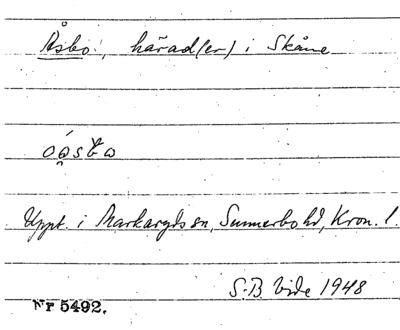 Åsbo, härad(er) i Skåne
Uppt. i Markaryds sn, Sunnerbo hd, Kron. l.
S.B. Vide 1948
Nr 5492.